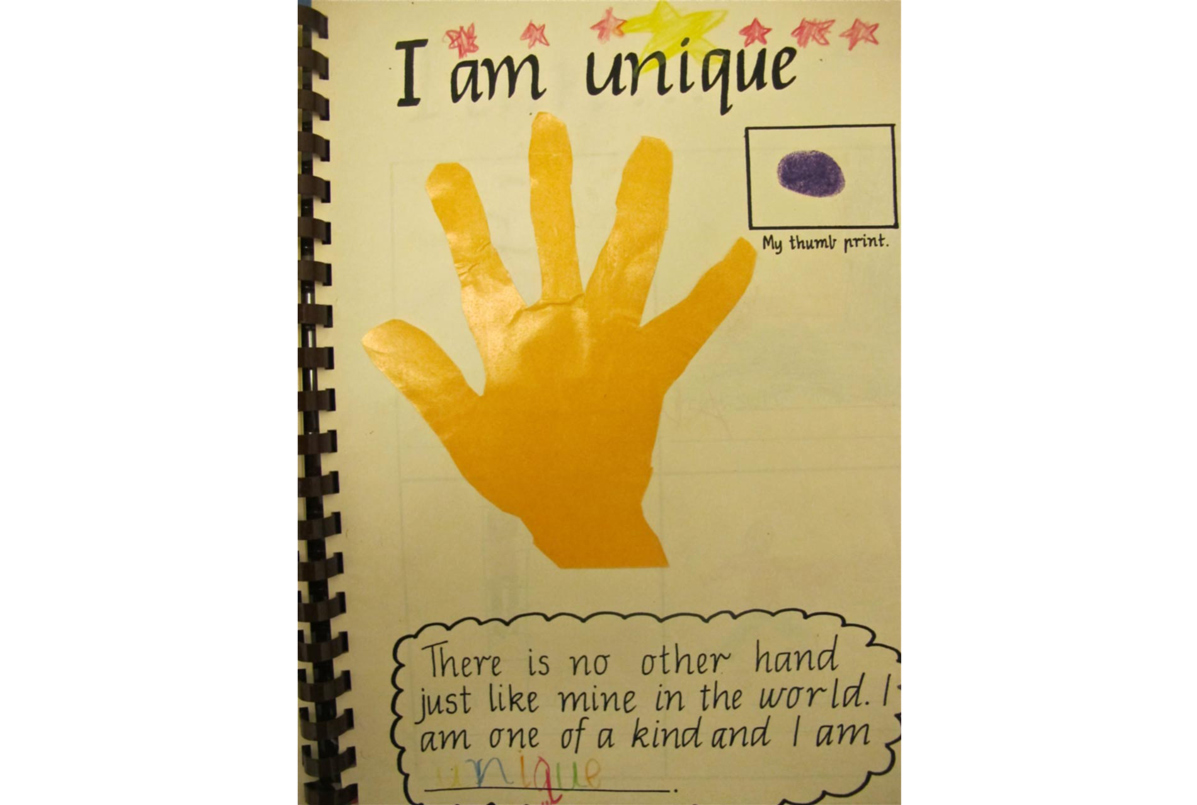 I am unique
My thumb print.
There is no other hand
just like mine in the world. I
am one of a kind and I am
unique.